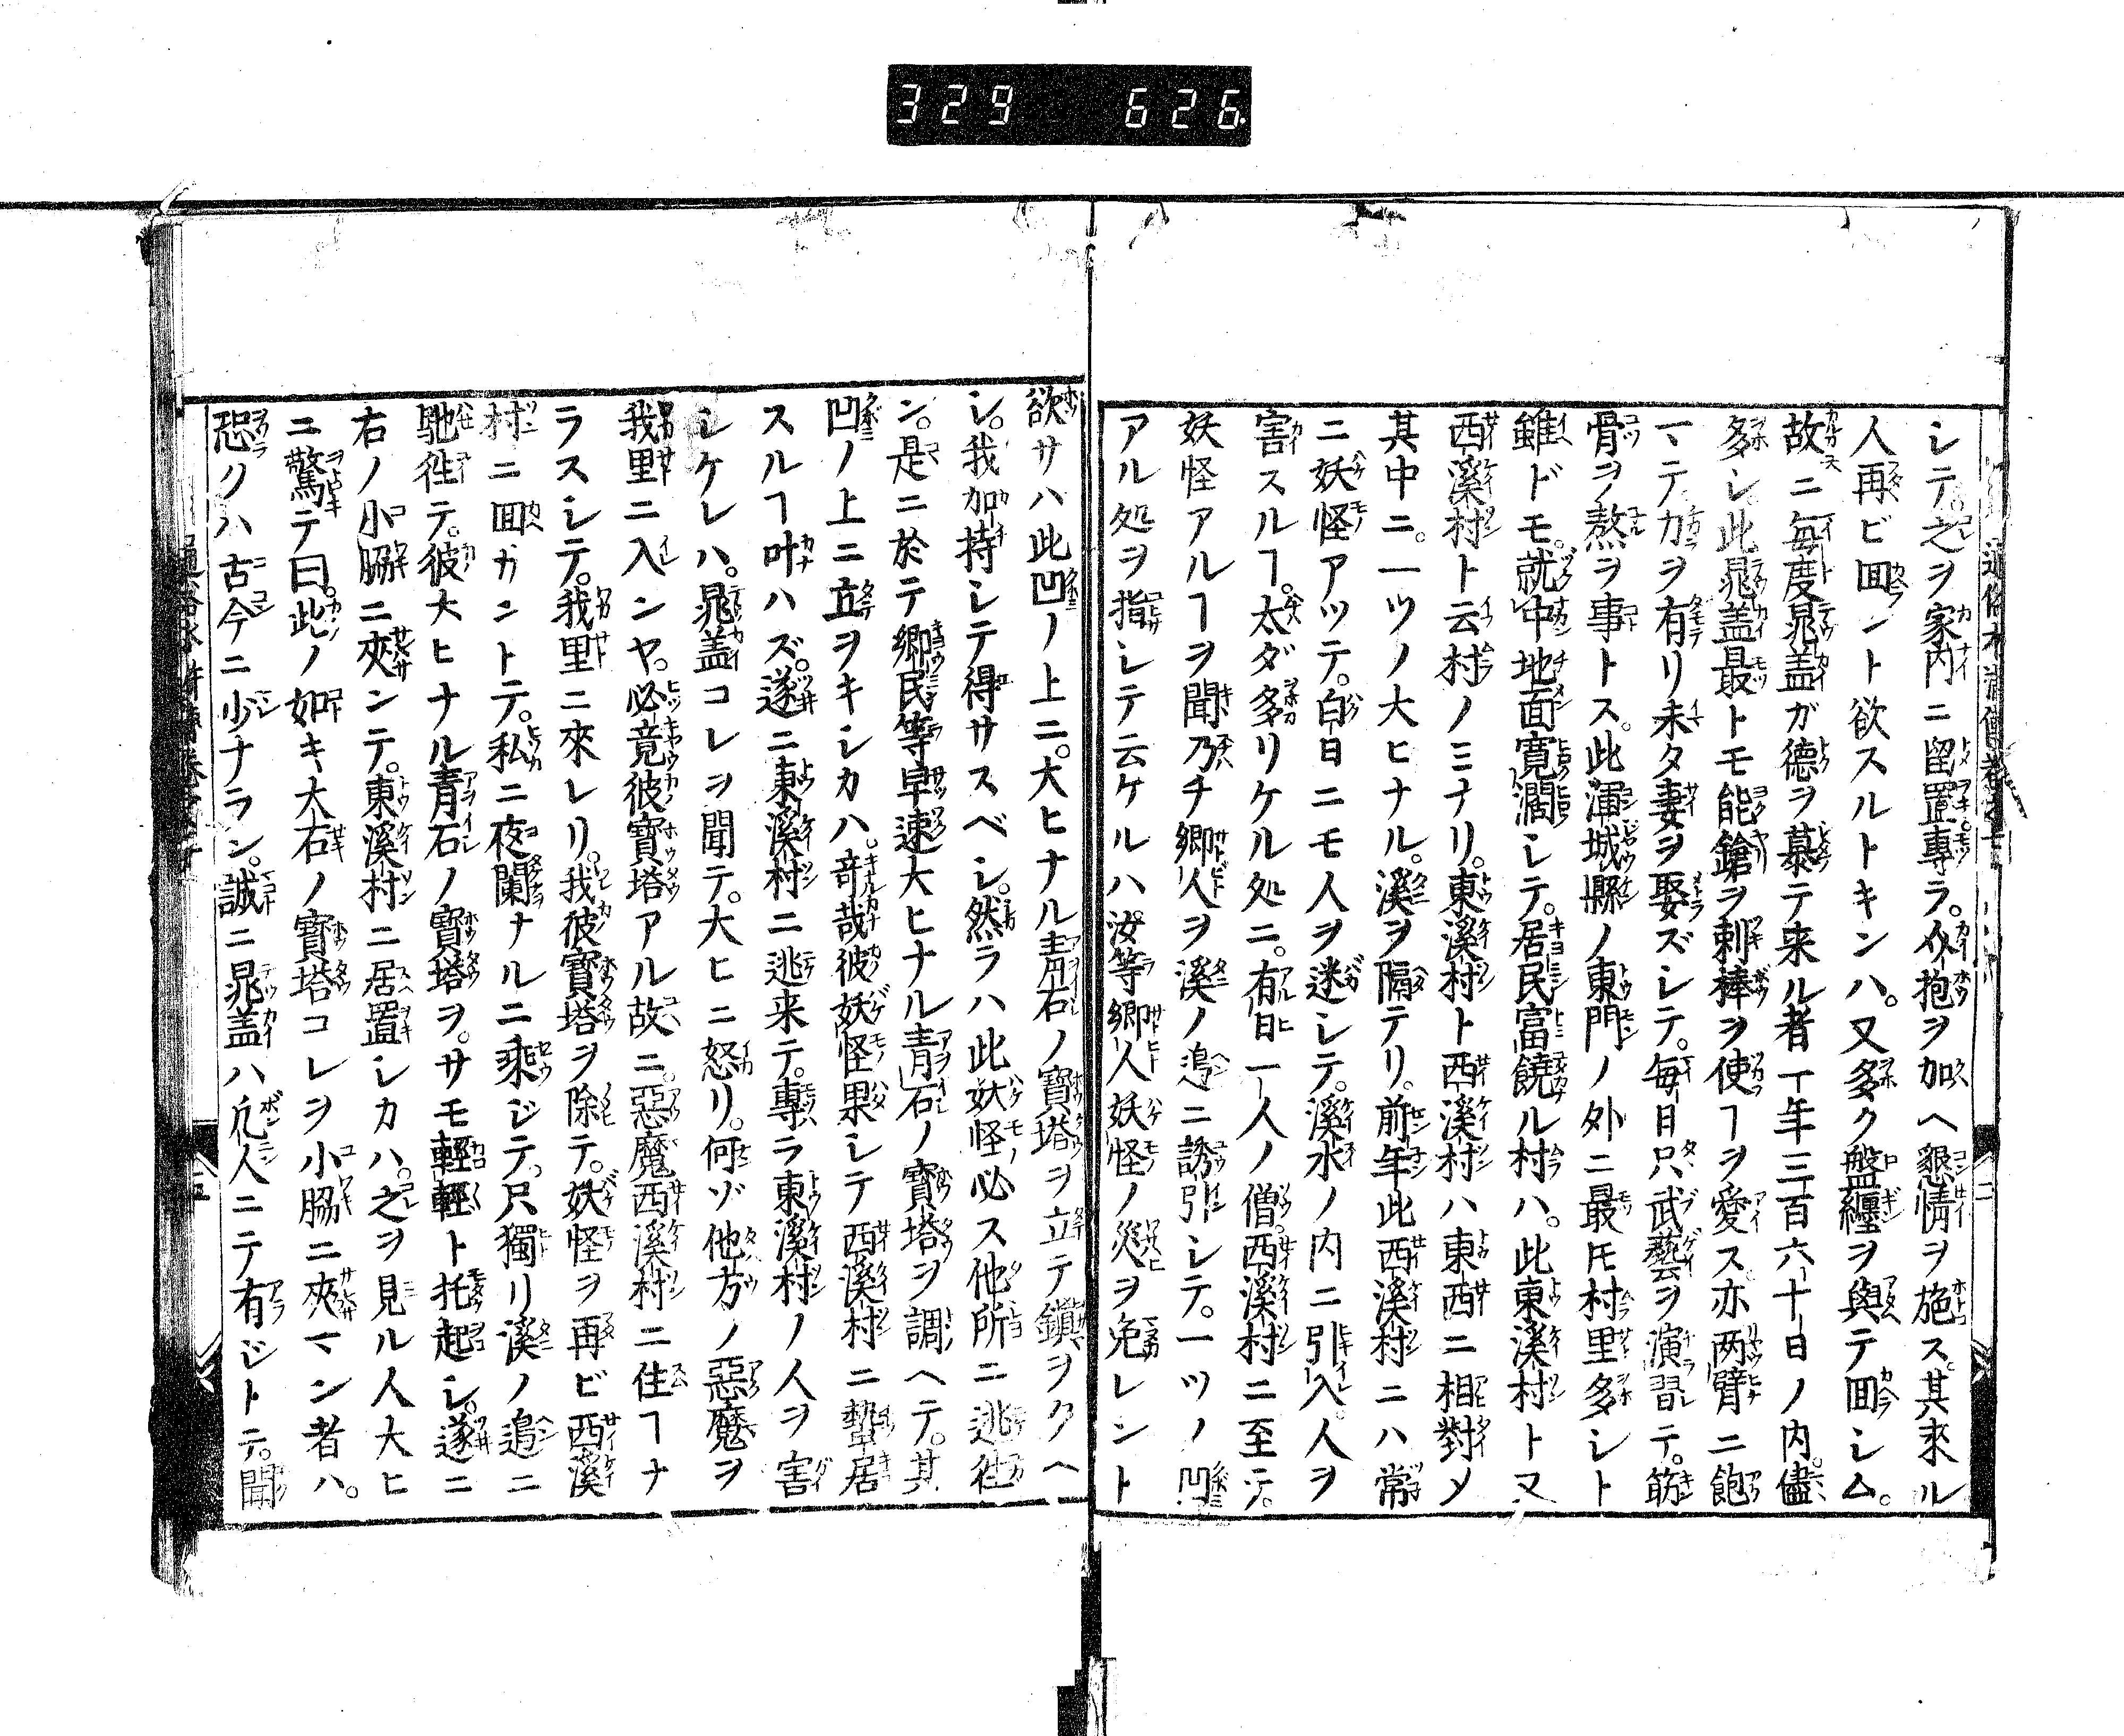 329 626
シテ。之ヲ家内ニ留置專ラ。介抱ヲ加ヘ懇情ヲ施ス。其來ル
人再ビ回ント欲スルトキンハ。又多ク盤纏ヲ與テ回シム。
故ニ毎度晁盖ガ德ヲ慕テ来ル者一年三百六十日ノ内。儘
多シ。此晁盖最トモ能鎗ヲ刺棒ヲ使ヿヲ愛ス。亦两臂ニ飽
マテ力ヲ有リ未タ妻ヲ娶ズシテ。毎日只武藝ヲ演習テ。筋
骨ヲ熬ヲ事トス。此渾城縣ノ東門ノ外ニ最モ村里多シト
雖ドモ。就中地面寛濶シテ。居民富饒ル村ハ。此東溪村ト又
西溪村ト云村ノミナリ。東溪村ト西溪村ハ東西ニ相對メ
其中ニ。一ツノ大ヒナル。溪ヲ隔テリ。前年此西溪村ニハ常
ニ妖怪アツテ。白日ニモ人ヲ迷シテ。溪水ノ内ニ引入。人ヲ
害スルヿ。太ダ多リケル処ニ。有日一人ノ僧。西溪村ニ至テ。
妖怪アルヿヲ聞乃チ郷人ヲ溪ノ邉ニ誘引シテ。一ツノ凹
アル処ヲ指シテ云ケルハ。汝等郷人妖怪ノ災ヲ免レント
欲サハ此凹ノ上ニ。大ヒナル青石ノ寶塔ヲ立テ鎭ヲクヘ
シ。我加持シテ得サスベシ。然ラハ此妖怪必ス他所ニ逃徃
ン。是ニ於テ郷民等早速大ヒナル青石ノ寶塔ヲ調ヘテ。其
凹ノ上ニ立ヲキシカハ。竒哉彼妖怪果シテ西溪村ニ蟄居
スルヿ叶ハズ。遂ニ東溪村ニ逃来テ。專ラ東溪村ノ人ヲ害
シケレハ。晁盖コレヲ聞テ。大ヒニ怒リ。何ゾ他方ノ惡魔ヲ
我里ニ入ンヤ。必竟彼寶塔アル故ニ。惡魔西溪村ニ住ヿナ
ラスシテ。我里ニ來レリ。我彼寶塔ヲ除テ。妖怪ヲ再ビ西溪
村ニ回ガントテ。私ニ夜闌ナルニ乘ジテ。只獨リ溪ノ邉ニ
馳徃テ。彼大ヒナル青石ノ寶塔ヲ。サモ輕輕ト托起シ。遂ニ
右ノ小脇ニ夾ンテ。東溪村ニ居置シカハ。之ヲ見ル人大ヒ
ニ驚テ曰。此ノ如キ大石ノ寶塔コレヲ小脇ニ夾マン者ハ。
恐クハ古今ニ少ナラン。誠ニ晁盖ハ凡人ニテ有ジトテ。聞